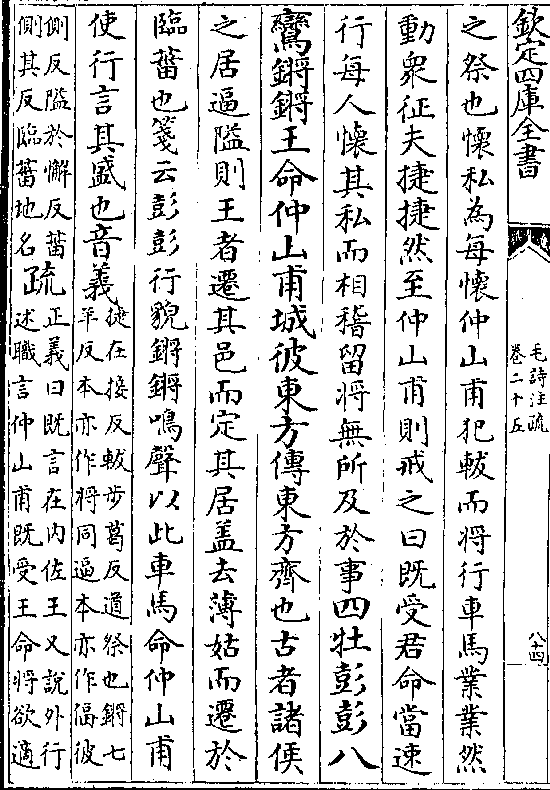 欽定四庫全書
毛詩注疏
卷二十五
八十四
之祭也懷私為每懷仲山甫犯軷而将行車馬業業然
動衆征夫捷捷然至仲山甫則戒之曰既受君命當速
行每人懷其私而相稽留将無所及於事四牡彭彭八
鸞鏘鏘王命仲山甫城彼東方傳東方齊也古者諸侯
之居逼隘則王者遷其邑而定其居盖去薄姑而遷於
臨菑也箋云彭彭行貌鏘鏘鳴聲以此車馬命仲山甫
使行言其盛也音義捷在接反軷歩葛反道祭也鏘七
羊反本亦作将同逼本亦作偪彼
側反隘於懈反菑
側其反臨菑地名疏正義曰既言在内佐王又說外行
述職言仲山甫既受王命将欲適